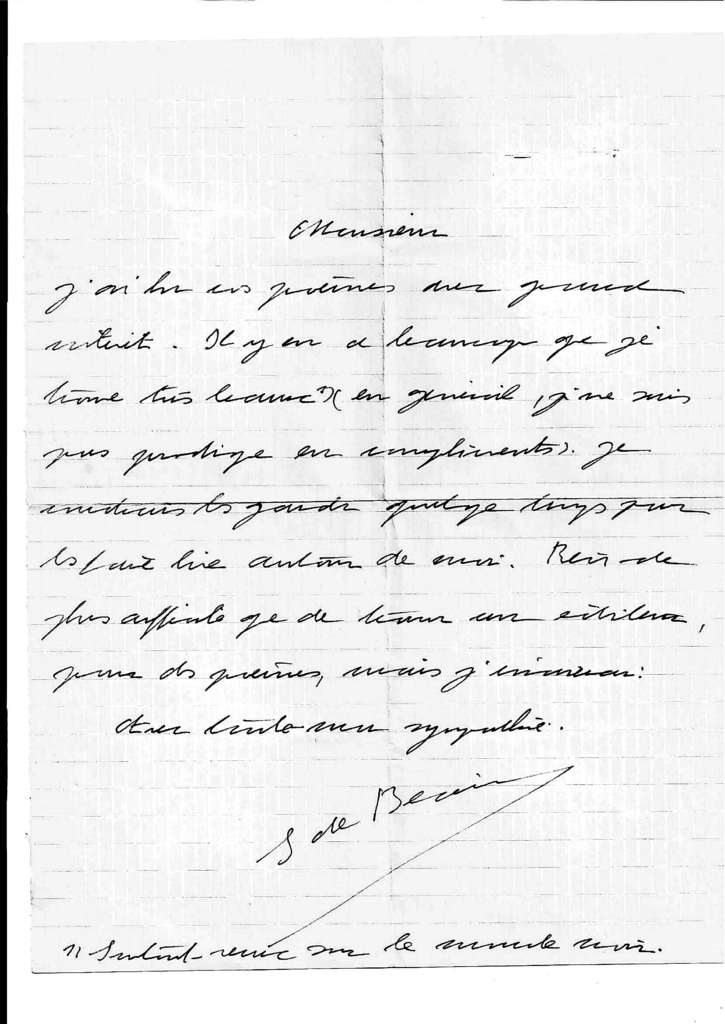 Monsieur
j'ai lu vos poèmes avec grand
intérêt. Il y en a beaucoup que je
trouve très beaux 1) (en général, je ne suis
pas prodigue en compliments). Je
voudrais les garder quelque temps pour
les faire lire autour de moi. Rien de
plus difficile que de trouver un éditeur,
pour des poèmes, mais j'essaierai.
Avec toute ma sympathie.
S de Beauvoir
1) Surtout ceux sur le monde noir.